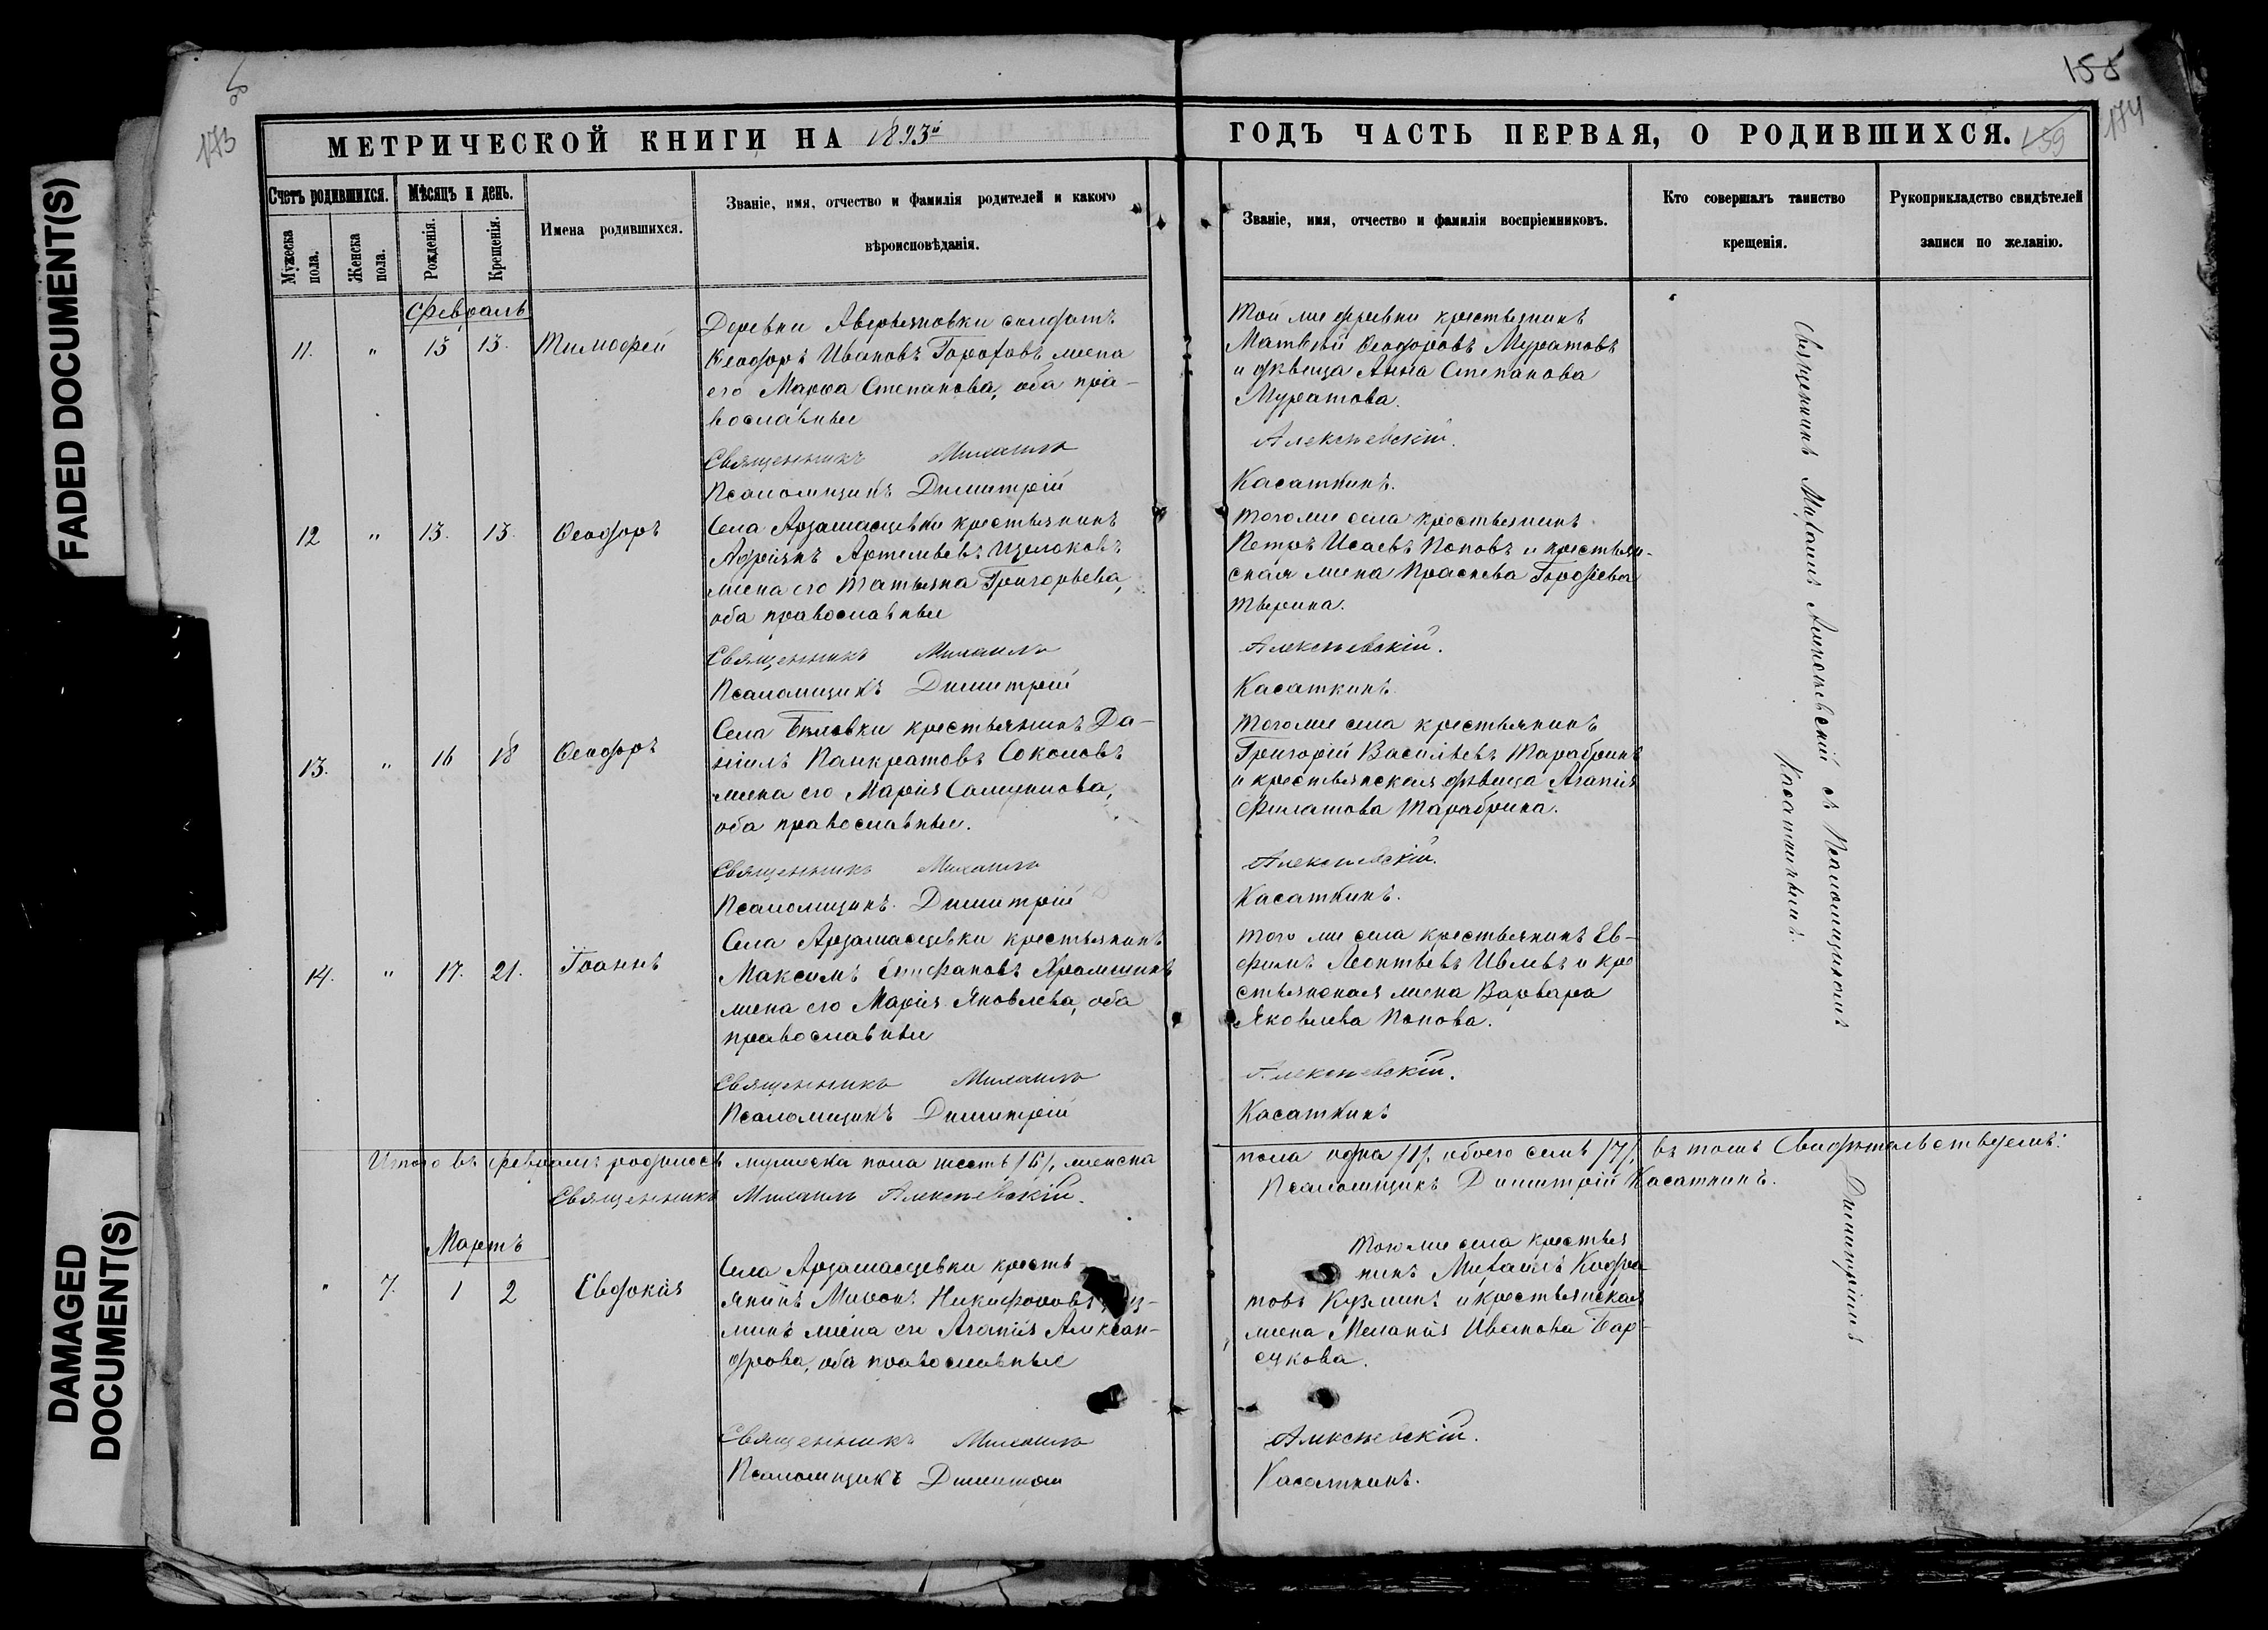 FADED DOCUMENT(S)
DAMAGED DOCUMENT(S)
173
155
174
159
МЕТРИЧЕСКОЙ КНИГИ НА 1893й
ГОДЪ ЧАСТЬ ПЕРВАЯ, О РОДИВШИХСЯ.
Счетъ родившихся.
Мужеска пола.
Женска пола.
Мѣсяцъ и день.
Рожденія.
Крещенія.
Имена родившихся.
Званіе, имя, отчество и фамилія родителей и какого
вѣроисповѣданія.
Званіе, имя, отчество и фамилія воспріемниковъ.
Кто совершалъ таинство
крещенія.
Рукоприкладство свидѣтелей
записи по желанію.
Февраль
11. " 13 13. Тимофей
Деревни Аверьяновки солдатъ
Ѳеодоръ Ивановъ Гороховъ жена
его Марѳа Степанова, оба пра-
вославные
Священникъ Михаилъ
Псаломщикъ Димитрій
Той же деревни крестьянинъ
Матвѣй Ѳеодоровъ Муратовъ
и дѣвица Анна Степанова
Муратова.
Алексѣевскій.
Касаткинъ.
12 " 13. 13. Ѳеодоръ
Села Арзамасцевки крестьянинъ
Адріянъ Артемьевъ Щелоковъ
жена его Татьяна Григорьева,
оба православные
Священникъ Михаилъ
Псаломщикъ Димитрій
Того же села крестьянинъ
Петръ Исаевъ Поповъ и крестьян-
ская жена Праскева Гордѣева
Тверина.
Алексѣевскій.
Касаткинъ.
13. " 16 18 Ѳеодоръ
Села Бѣловки крестьянинъ Да-
ніилъ Панкратовъ Соколовъ
жена его Марія Самуилова,
оба православные.
Священникъ Михаилъ
Псаломщикъ Димитрій
Того же села крестьянинъ
Григорій Васильевъ Тарабринъ
и крестьянская дѣвица Агапія
Филатова Тарабрина.
Алексѣевскій.
Касаткинъ.
14. " 17. 21. Іоаннъ
Села Арзамасцевки крестьянинъ
Максимъ Епифановъ Храмшинъ
жена его Марія Яковлева, оба
православные
Священникъ Михаилъ
Псаломщикъ Димитрій
Того же села крестьянинъ Ев-
фимъ Леонтьевъ Ивлевъ и кре
стьянская жена Варвара
Яковлева Попова.
Алексѣевскій.
Касаткинъ
Священникъ Михаилъ Алексѣевскій съ Псаломщикомъ Димитріемъ
Касаткинымъ.
Итого въ февралѣ родилось мужеска пола шесть /6/, женска
пола одна /1/. обоего семь /7/, въ томъ Свидѣтельствуемъ:
Священникъ Михаилъ Алексѣевскій.
Псаломщикъ Димитрій Касаткинъ.
Мартъ
" 7. 1 2 Евдокія
Села Арзамасцевки кресть-
янинъ Миронъ Никифоровъ
минъ жена его Агапія Алексан-
дрова, оба православные
Священникъ Михаилъ
Псаломщикъ Димитрій
Того же села крестья
нинъ Михаилъ Кодра
товъ Кузминъ и крестьянская
жена Меланія Иванова Бар-
сукова.
Алексѣевскій.
Касаткинъ.